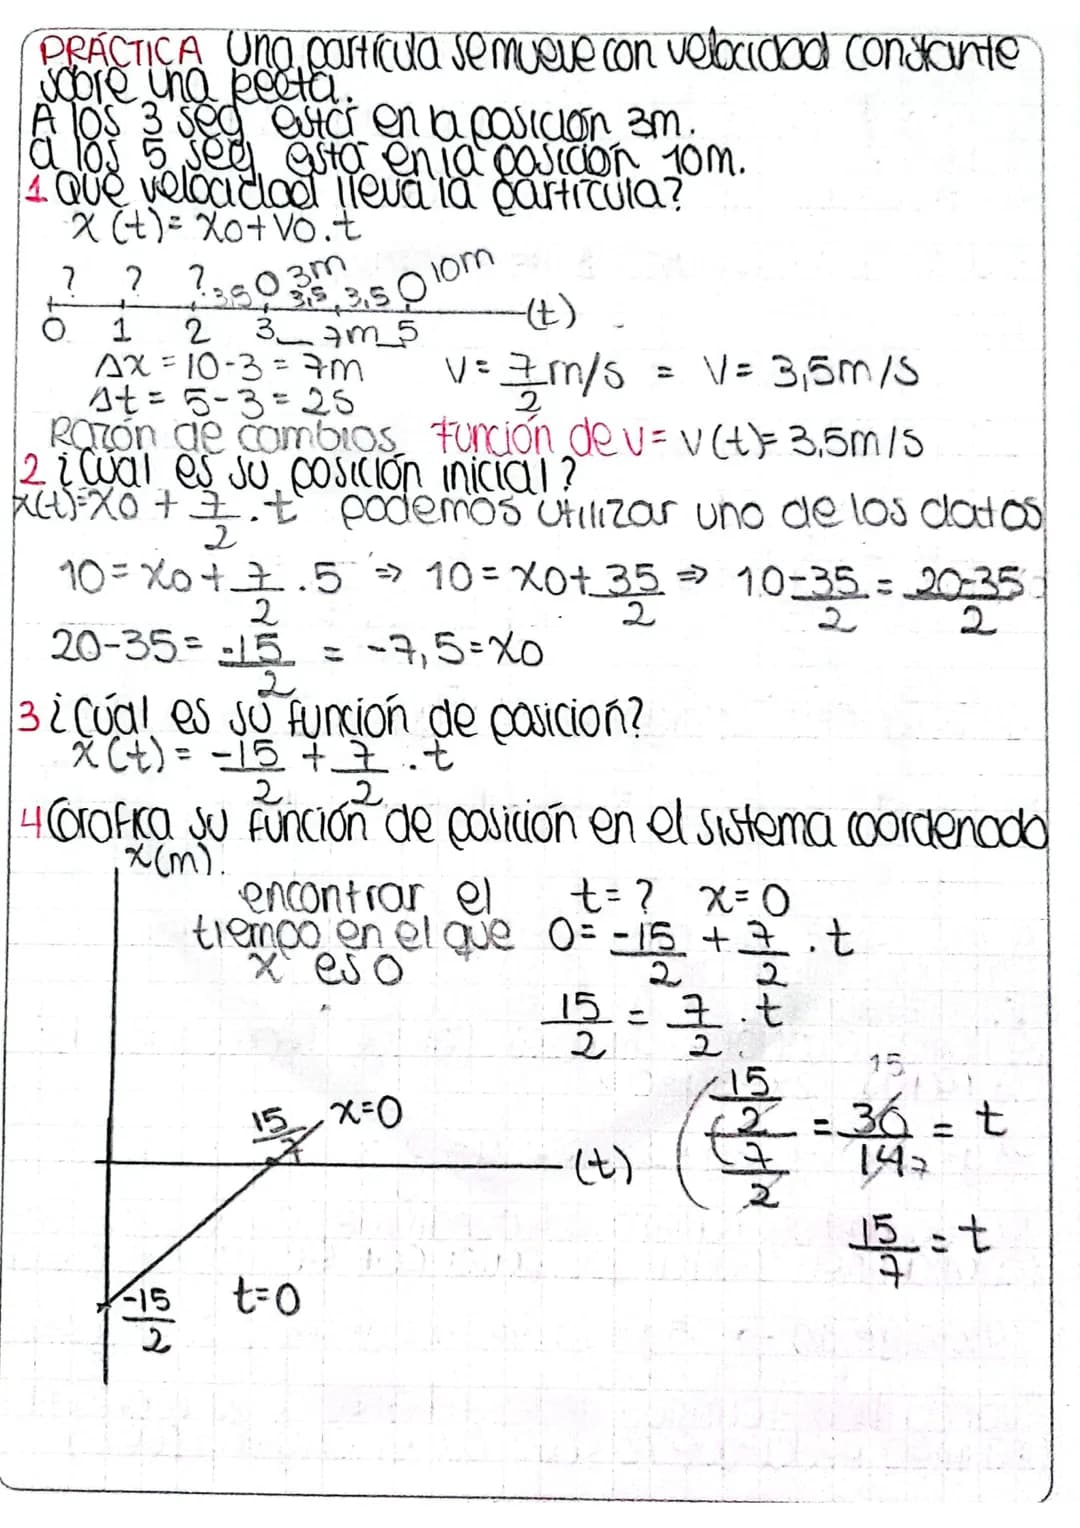 PRÁCTICA Una partícula se mueve con velocidad constante
sobre una recta.
A los 3 seg está en la posición 3m.
a los 5 seg está en la posición 10m.
1 Que velocidad lleva la partícula?
x(t)= x0+v0.t
? ? ? 3,5 3m 3,5 3,5 10m
0 1 2 3 7m 5 (t)
Δx = 10-3 = 7m V= 7/2 m/s = V= 3,5m/s
Δt = 5-3 = 2s
Razón de cambios función de v= v(t)= 3,5m/s
2 ¿Cúal es su posición inicial?
x(t)=x0 + 7/2 . t podemos utilizar uno de los datos
10 = x0 + 7/2 . 5 ⇒ 10 = x0+ 35/2 ⇒ 10-35/2 = 20-35/2
20-35= -15/2 = -7,5=x0
3 ¿Cúal es su función de posición?
x(t) = -15/2 + 7/2 . t
4 Grafica su función de posición en el sistema coordenado
x(m).
encontrar el t=? x=0
tiempo en el que 0= -15/2 + 7/2 . t
x es 0
15/2 = 7/2 . t
15/2 / 7/2 = 30/14 = t
15 7
15/7 x=0
(t)
15/7 = t
-15/2 t=0